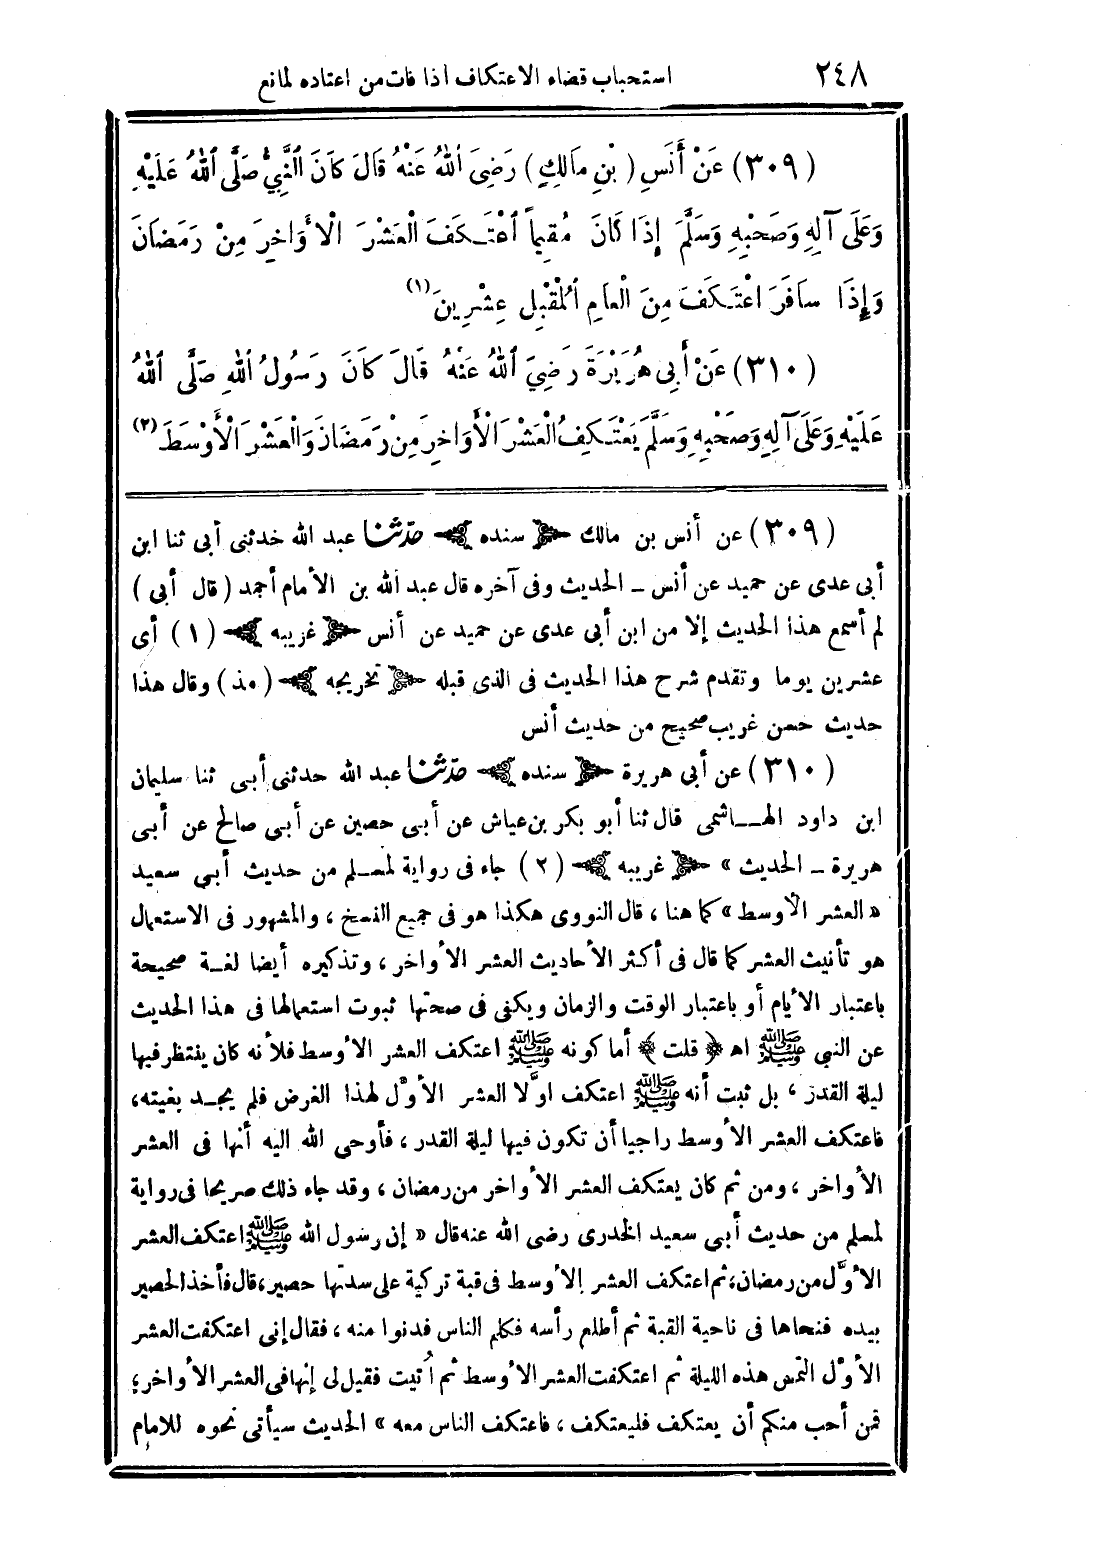 ٢٤٨ استحباب قضاء الاعتكاف اذا فات من اعتاده لمانع
(٣٠٩) عَنْ أَنَسِ (بْنِ مَالِكٍ) رَضِيَ اللهُ عَنْهُ قَالَ كَانَ النَّبِيُّ صَلَّى اللهُ عَلَيْهِ
وَعَلَى آلِهِ وَصَحْبِهِ وَسَلَّمَ إِذَا كَانَ مُقِيمًا اعْتَكَفَ الْعَشْرَ الْأَوَاخِرَ مِنْ رَمَضَانَ
وَإِذَا سَافَرَ اعْتَكَفَ مِنَ الْعَامِ الْمُقْبِلِ عِشْرِينَ (١)
(٣١٠) عَنْ أَبِي هُرَيْرَةَ رَضِيَ اللهُ عَنْهُ قَالَ كَانَ رَسُولُ اللهِ صَلَّى اللهُ
عَلَيْهِ وَعَلَى آلِهِ وَصَحْبِهِ وَسَلَّمَ يَعْتَكِفُ الْعَشْرَ الْأَوَاخِرَ مِنْ رَمَضَانَ وَالْعَشْرَ الْأَوْسَطَ (٢)
(٣٠٩) عن أنس بن مالك ﴿ سنده ﴾ حدّثنا عبد الله حدثنى أبى ثنا ابن
أبى عدى عن حميد عن أنس ــ الحديث وفى آخره قال عبد الله بن الأمام أحمد (قال أبى)
لم أسمع هذا الحديث إلا من ابن أبى عدى عن حميد عن أنس ﴿ غريبه ﴾ (١) أى
عشرين يوما وتقدم شرح هذا الحديث فى الذى قبله ﴿ تخريجه ﴾ (مذ) وقال هذا
حديث حسن غريب صحيح من حديث أنس
(٣١٠) عن أبى هريرة ﴿ سنده ﴾ حدّثنا عبد الله حدثنى أبى ثنا سليمان
ابن داود الهاشمى قال ثنا أبو بكر بن عياش عن أبى حصين عن أبى صالح عن أبى
هريرة ــ الحديث » ﴿ غريبه ﴾ (٢) جاء فى رواية لمسلم من حديث أبى سعيد
« العشر الأوسط » كما هنا ، قال النووى هكذا هو فى جميع النسخ ، والمشهور فى الاستعمال
هو تأنيث العشر كما قال فى أكثر الأحاديث العشر الأواخر ، وتذكيره أيضا لغة صحيحة
باعتبار الأيام أو باعتبار الوقت والزمان ويكفى فى صحتها ثبوت استعمالها فى هذا الحديث
عن النبي ﷺ اهـ ﴿ قلت ﴾ أما كونه ﷺ اعتكف العشر الأوسط فلأنه كان ينتظر فيها
ليلة القدر ، بل ثبت أنه ﷺ اعتكف اولًا العشر الأوّل لهذا الغرض فلم يجد بغيته ،
فاعتكف العشر الأوسط راجيا أن تكون فيها ليلة القدر ، فأوحى الله اليه أنها فى العشر
الأواخر ، ومن ثم كان يعتكف العشر الأواخر من رمضان ، وقد جاء ذلك صريحا فى رواية
لمسلم من حديث أبى سعيد الخدرى رضى الله عنه قال « إن رسول الله ﷺ اعتكف العشر
الأوَّل من رمضان ، ثم اعتكف العشر الأوسط فى قبة تركية على سدتها حصير ، قال فأخذ الحصير
بيده فنحاها فى ناحية القبة ثم أطلع رأسه فكلم الناس فدنوا منه ، فقال إنى اعتكفت العشر
الأوّل التمس هذه الليلة ثم اعتكفت العشر الأوسط ثم أُتيت فقيل لى إنها فى العشر الأواخر ؛
فمن أحب منكم أن يعتكف فليعتكف ، فاعتكف الناس معه » الحديث سيأتى نحوه للامام